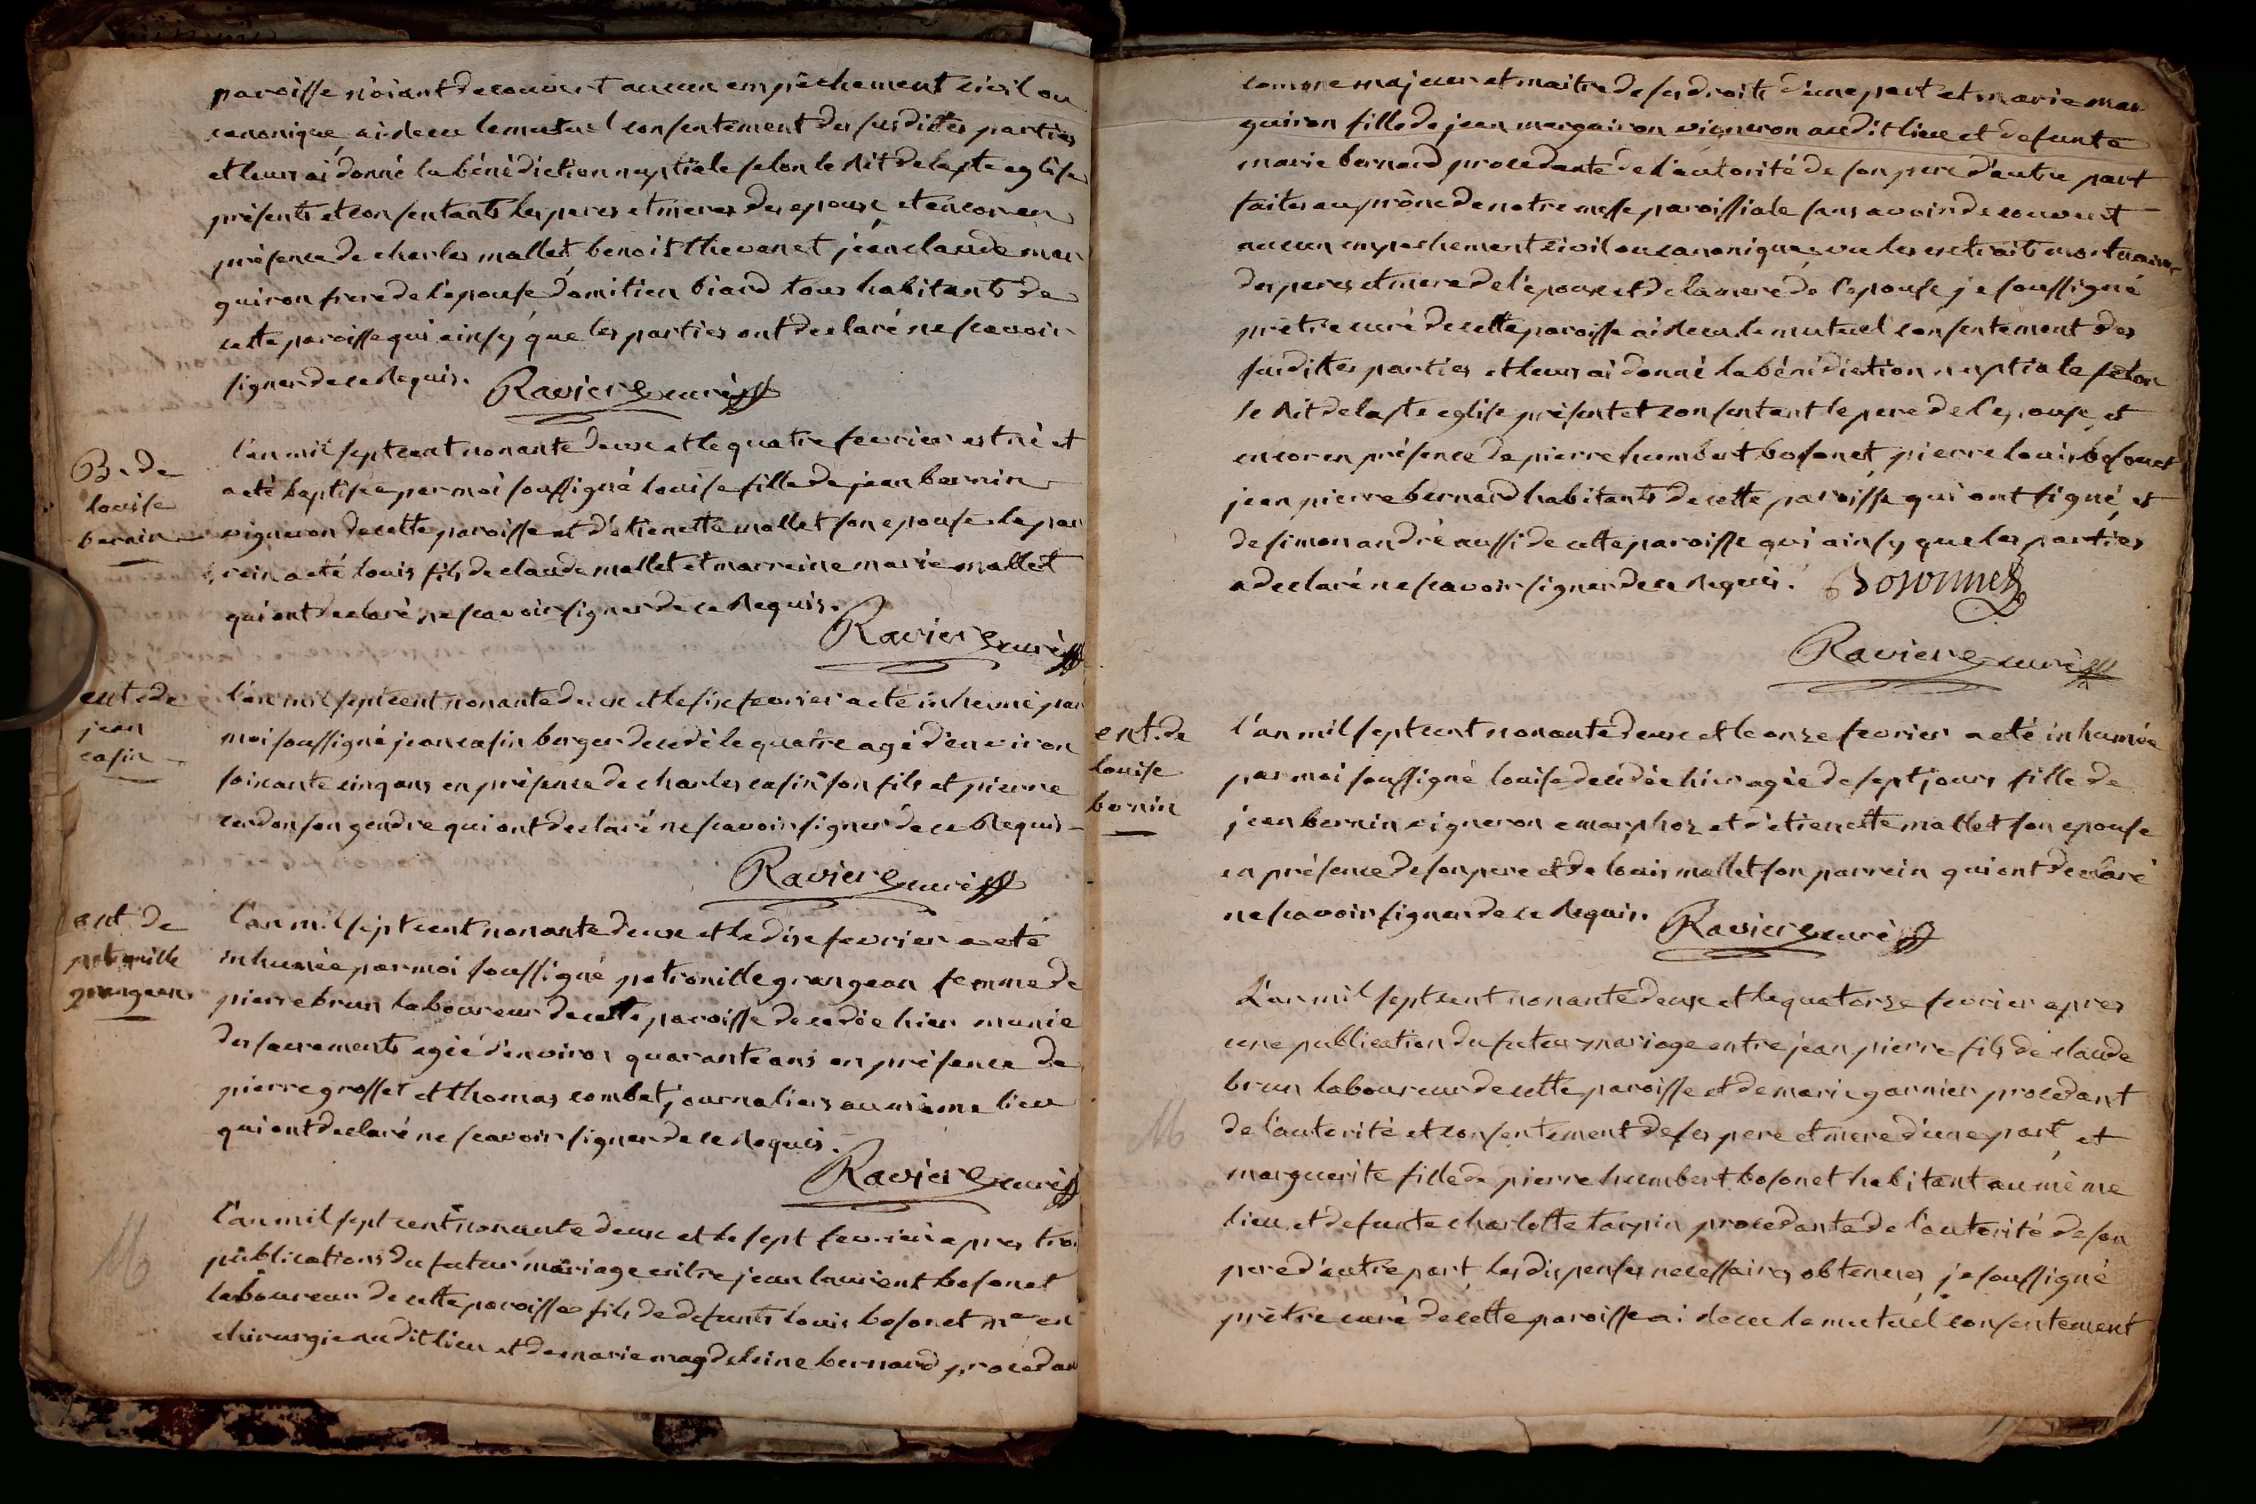 paroisse n'oiant decouvert aucun empêchement civil ou
canonique ai decu le mutuel consentement des susdittes parties
et leurs ai donné la bénédiction nuptiale selon le Rit de la ste eglise
présents et consentants les peres et meres des epoux et encor en
présence de charles mallet, benoist thevenet jean claude mar
guiron frere de l'epouse domitien biard tous habitants de
cette paroisse qui ainsy que les parties ont declaré ne scavoir
signer de ce Requis. Raviere curé
B. de
louise
bernin
l'an mil sept cent nonante deux et le quatre fevrier est né et
a eté baptisée par moi soussigné louise fille de jean bernin
vigneron de cette paroisse et d'etienette mallet son epouse le par
rein a eté louis fils de claude mallet et marreine marie mallet
qui ont declaré ne scavoir signer de ce Requis.
Raviere curé
ent. de
jean
casin
l'an mil sept cent nonante deux et le six fevrier a eté inhumé par
moi soussigné jean casin berger decedé le quatre agé d'environ
soixante cinq ans en présence de charles casin son fils et pierre
cerdon son gendre qui ont declaré ne scavoir signer de ce Requis
Raviere curé
ent. de
petronille
grangean
l'an mil sept cent nonante deux et le dix fevrier a eté
inhumée par moi soussigné petronille grangean femme de
pierre brun laboureur de cette paroisse decedée hier munie
des sacrements agée d'environ quarante ans en présence de
pierre grosset et thomas combet journaliers au même lieu
qui ont declaré ne scavoir signer de ce Requis.
Raviere curé
M
l'an mil sept cent nonante deux et le sept fevrier apres trois
publications du futur mariage entre jean laurent bosonet
laboureur de cette paroisse fils de defunts louis bosonet me en
chirurgie audit lieu et de marie magdeleine bernard procedan
comme majeur et maitre de ses droits d'une part et marie mar
guiron fille de jean marguiron vigneron audit lieu et defunte
marie bernard procedante de l'autorité de son pere d'autre part
faites au prône de notre messe paroissiale sans avoir decouvert
aucun empechement civil ou canonique vu les extraits mortuaires
des peres et mere de l'epoux et de la mere de l'epouse je soussigné
prêtre curé de cette paroisse ai decu le mutuel consentement des
susdittes parties et leurs ai donné la bénédiction nuptiale selon
le Rit de la ste eglise présent et consentant le pere de l'epouse, et
encor en présence de pierre humbert bosonet, pierre louis bosonet
jean pierre bernard habitants de cette paroisse qui ont signé, et
de simon andré aussi de cette paroisse qui ainsy que les parties
a declaré ne scavoir signer de ce Requis. Bosonnet
Raviere curé
ent. de
louise
bernin
l'an mil sept cent nonante deux et le onze fevrier a eté inhumée
par moi soussigné louise decédée hier agée de sept jours fille de
jean bernin vigneron a marphoz et d'etienette mallet son epouse
en présence de son pere et de louis mallet son parrein qui ont declaré
ne scavoir signer de ce Requis. Raviere curé
M
L'an mil sept cent nonante deux et le quatorze fevrier apres
une publication du futur mariage entre jean pierre fils de claude
brun laboureur de cette paroisse et de marie garnier procedant
de l'autorité et consentement de ses pere et mere d'une part, et
marguerite fille de pierre humbert bosonet habitant au même
lieu et defunte charlotte tarpin procedante de l'autorité de son
pere d'autre part les dispenses necessaires obtenues, je soussigné
prêtre curé de cette paroisse ai decu le mutuel consentement